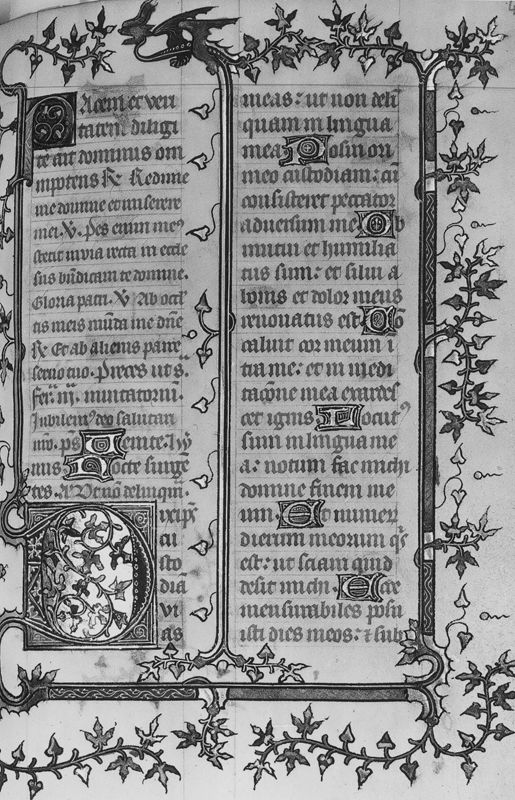 Pacem et veri
tatem diligi
te ait dominus om
nipotens R. Redime
me domine et miserere
mei. V. Pes enim meꝰ
stetit in via recta in eccle
siis bn̄dicam te domine.
Gloria patri. V. Ab occl̄
tis meis mūda me dn̄e
R. Et ab alienis parce
servo tuo. Preces ut s̄.
Jubilemꝰ deo salutari
nr̄o. ps Venite. Ym̄
nus Nocte surgē
tes. A. Ut nō delinquā.
Dixi ps̄
cu
sto
diā
vi
as
meas: ut non deli
quam in lingua
mea. Posui ori
meo custodiam: cū
consisteret peccator
adversum me. Ob
mutui et humilia
tus sum: et silui a
bonis et dolor meus
renovatus est. Cō
caluit cor meum ī
tra me: et in medi
tacōne mea exardes
cet ignis. Locutꝰ
sum in lingua me
a: notum fac michi
domine finem me
um. Et numerū
dierum meorum qͥs
est: ut sciam quid
desit michi. Ecce
mensurabiles posu
isti dies meos: ⁊ sub